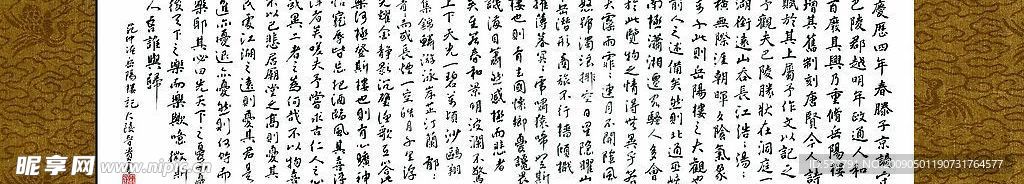 慶歷四年春滕子京謫守
巴陵郡越明年政通人和
百廢具興乃重修岳陽樓
增其舊制刻唐賢今人詩
賦於其上屬予作文以記之
予觀夫巴陵勝狀在洞庭一
湖銜遠山吞長江浩浩湯湯
橫無際涯朝暉夕陰氣象
萬千此則岳陽樓之大觀也
前人之述備矣然則北通巫峽
南極瀟湘遷客騷人多會
於此覽物之情得無異乎若
夫霪雨霏霏連月不開陰風
怒號濁浪排空日星隱曜山
岳潛形商旅不行檣傾楫
摧薄暮冥冥虎嘯猿啼登斯
樓也則有去國懷鄉憂讒畏
譏滿目蕭然感極而悲者
矣至若春和景明波瀾不驚
上下天光一碧萬頃沙鷗翔
集錦鱗游泳岸芷汀蘭郁郁
青青而或長煙一空皓月千里浮
光耀金靜影沉璧漁歌互答此
樂何極登斯樓也則有心曠神
怡寵辱皆忘把酒臨風其喜洋
洋者矣嗟夫予嘗求古仁人之心
或異二者之為何哉不以物喜
不以己悲居廟堂之高則憂其
民處江湖之遠則憂其君是
進亦憂退亦憂然則何時而
樂耶其必曰先天下之憂而憂
後天下之樂而樂歟噫微斯
人吾誰與歸
范仲淹岳陽樓記
昵享网 www.nipic.cn
NO:20090501190731764577